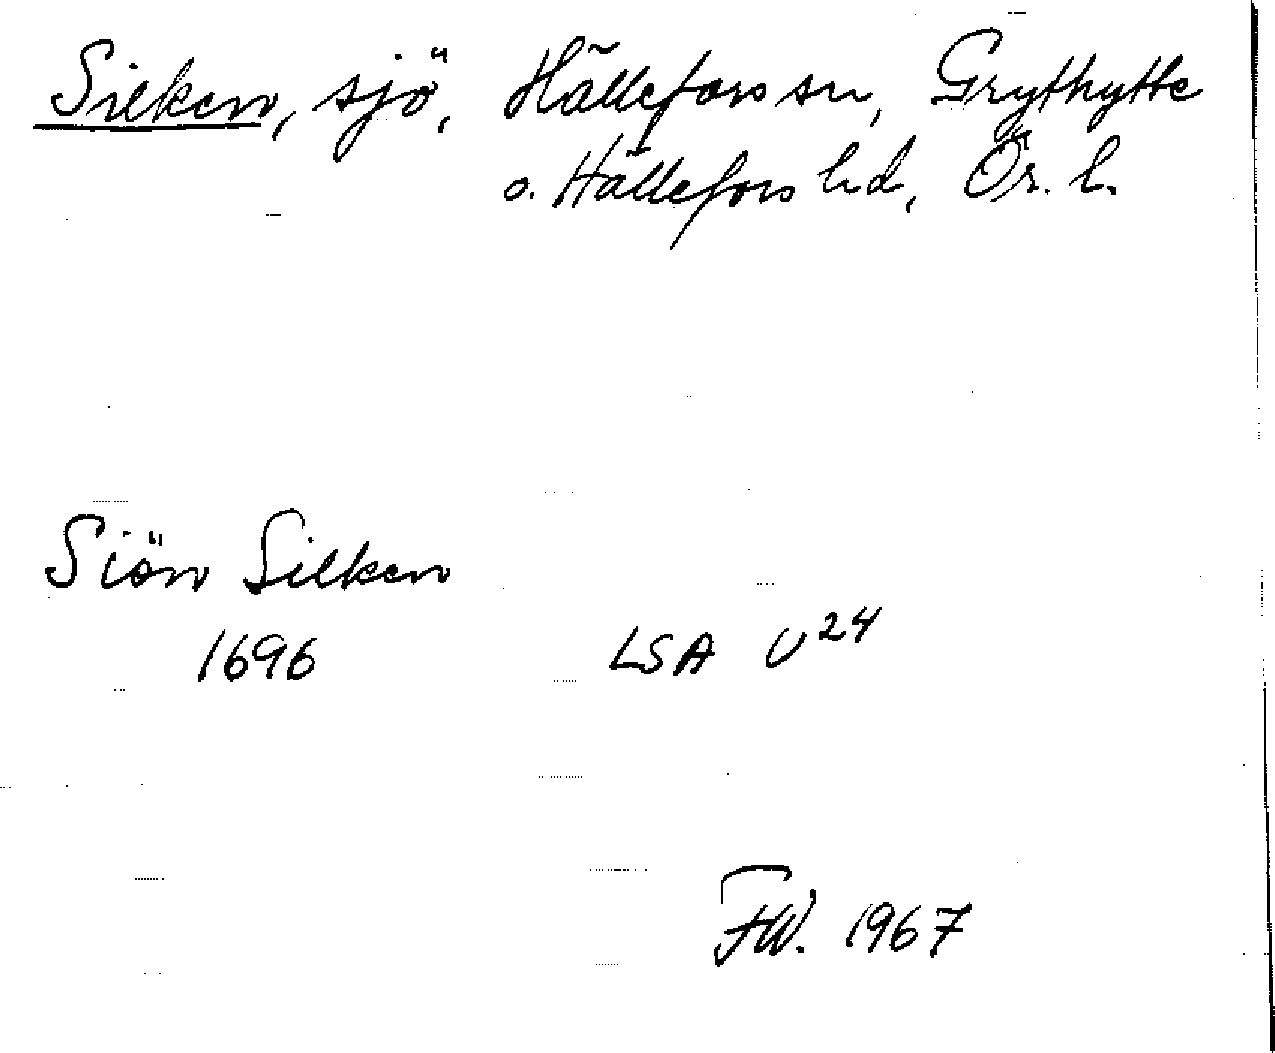 Silken, sjö, Hällefors sn, Grythytte
o. Hällefors hd, Ör. l.
Siön Silken
1696 LSA U24
FW. 1967